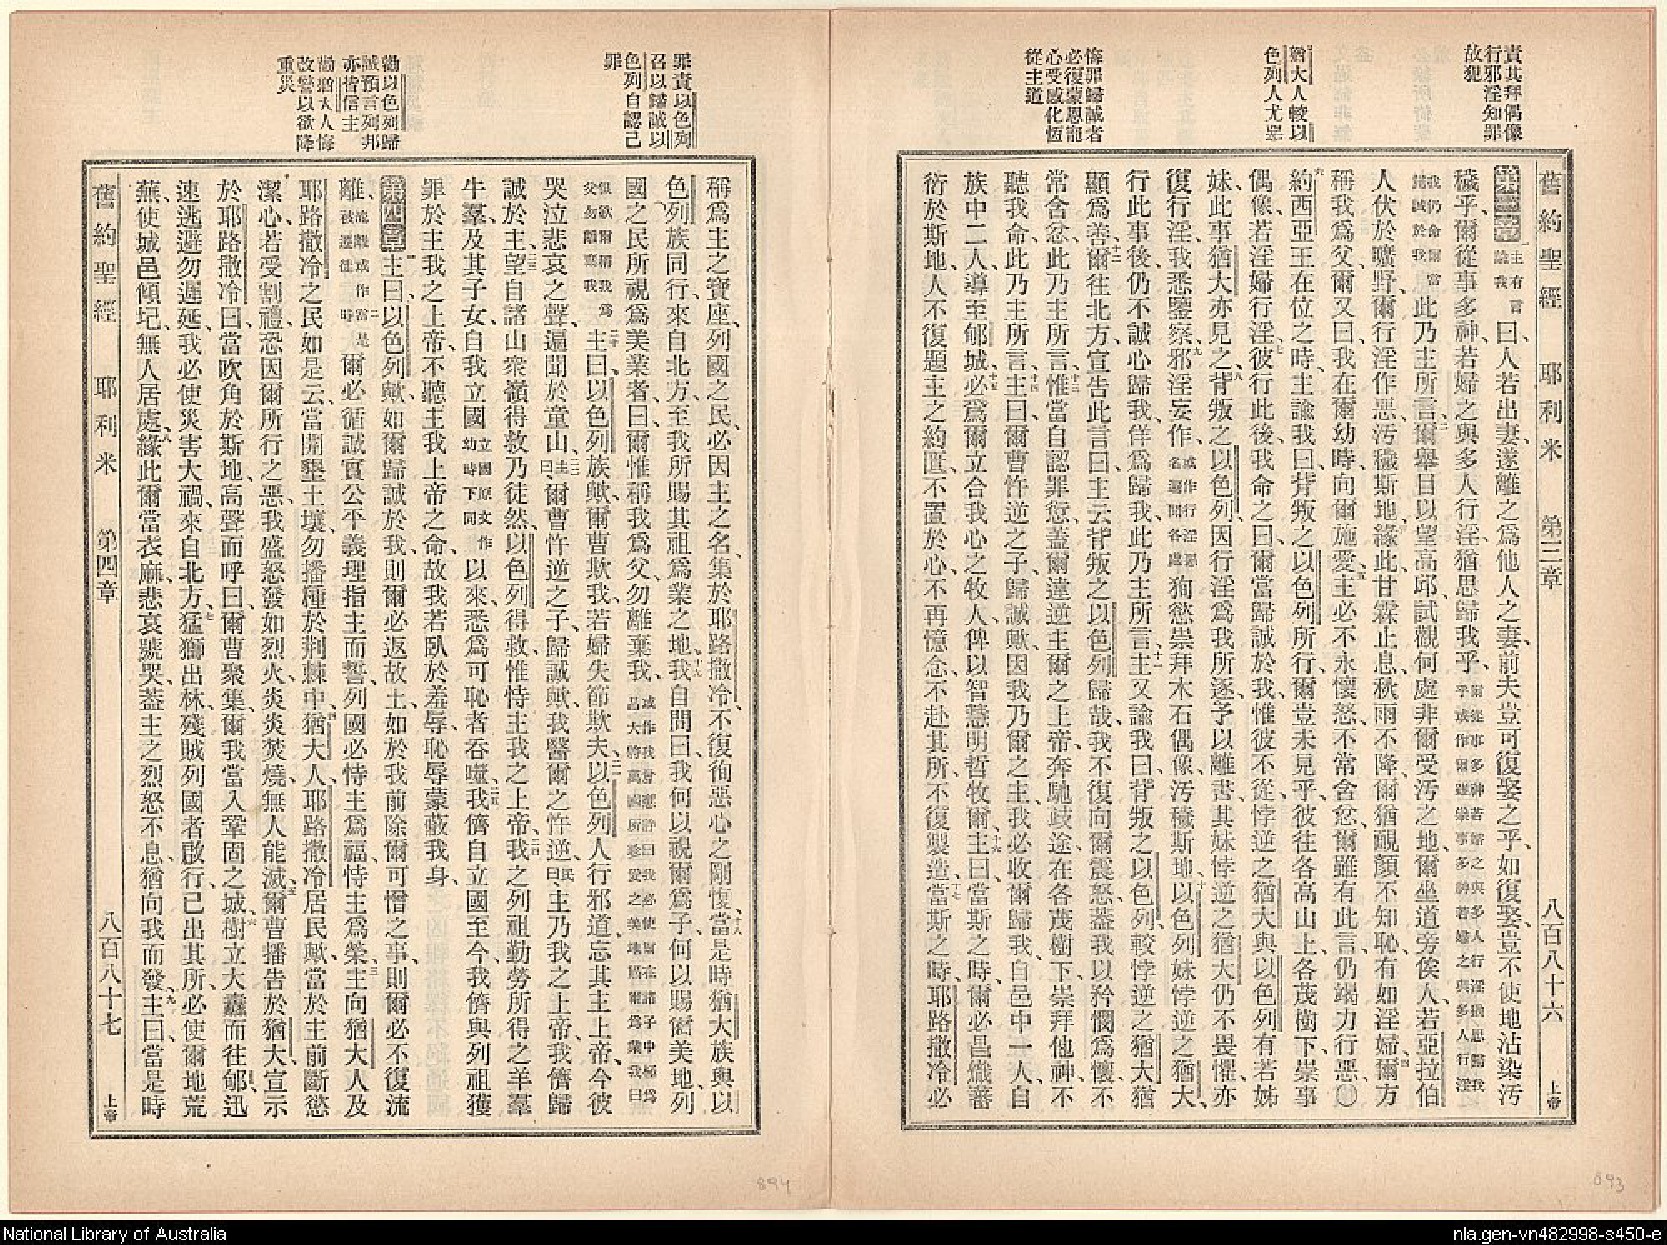 責其拜偶像
行邪淫知罪
故犯
猶大人較以
色列人尤罪
悔罪歸誠者
必復蒙恩寵
心受感化恆
從主道
舊約聖經 耶利米 第三章 八百八十六 上帝
第三章 一主有言諭我曰人若出妻、遂離之爲他人之妻、前夫豈可復娶之乎、如復娶、豈不使地沾染汚
穢乎、爾從事多神、若婦之與多人行淫、猶思歸我乎、爾從事多神若婦之與多人行淫猶思歸我乎或作爾雖崇事多神若婦之與多人行淫
我仍命爾當歸誠於我此乃主所言、二爾舉目以望高邱、試觀何處非爾受汚之地、爾坐道旁俟人、若亞拉伯
人伏於曠野、爾行淫作惡、汚穢斯地、三緣此甘霖止息、秋雨不降、爾猶靦顏不知恥、有如淫婦、四爾方
稱我爲父、爾又曰、我在爾幼時、向爾施愛、五主必不永懷怒、不常含忿、爾雖有此言、仍竭力行惡、〇
六約西亞王在位之時、主諭我曰、背叛之以色列所行、爾豈未見乎、彼往各高山上、各茂樹下、崇事
偶像、若淫婦行淫、七彼行此後、我命之曰、爾當歸誠於我、惟彼不從、悖逆之猶大、與以色列有若姊
妹、此事猶大亦見之、八背叛之以色列、因行淫爲我所逐、予以離書、其妹悖逆之猶大、仍不畏懼、亦
復行淫、我悉鑒察、九邪淫妄作、或作行淫惡名遍聞各處狥慾崇拜木石偶像、汚穢斯地、十以色列妹悖逆之猶大、
行此事後、仍不誠心歸我、佯爲歸我、此乃主所言、十一主又諭我曰、背叛之以色列、較悖逆之猶大猶
顯爲善、十二爾往北方、宣告此言曰、主云、背叛之以色列歸哉、我不復向爾震怒、蓋我以矜憫爲懷、不
常含忿、此乃主所言、十三惟當自認罪愆、蓋爾違逆主爾之上帝、奔馳歧途、在各茂樹下、崇拜他神、不
聽我命、此乃主所言、十四主曰、爾曹忤逆之子、歸誠歟、因我乃爾之主、我必收爾歸我、自邑中一人、自
族中二人、導至郇城、十五必爲爾立合我心之牧人、俾以智慧明哲牧爾、十六主曰、當斯之時、爾必昌熾蕃
衍於斯地、人不復題主之約匱、不置於心、不再憶念、不赴其所、不復製造、十七當斯之時、耶路撒冷必
罪責以色列
召以歸誠以
色列自認己
罪
勸以色列歸
誠預言列邦
亦皆信主
勸猶大人悔
改警以欲降
重災
稱爲主之寶座、列國之民、必因主之名、集於耶路撒冷、不復徇惡心之剛愎、十八當是時、猶大族與以
色列族同行、來自北方、至我所賜其祖爲業之地、十九我自問曰、我何以視爾爲子、何以賜爾美地、列
國之民所視爲美業者、曰、爾惟稱我爲父、勿離棄我、
惟欲爾稱我爲父勿離棄我二十主曰、以色列族歟、爾曹欺我、若婦失節欺夫、二一以色列人行邪道、忘其主上帝、今彼
哭泣悲哀之聲、遍聞於童山、二二主曰、爾曹忤逆之子、歸誠歟、我醫爾之忤逆、民曰、主乃我之上帝、我儕歸
誠於主、二三望自諸山衆嶺得救、乃徒然、以色列得救、惟恃主我之上帝、二四我之列祖勤勞所得之羊羣
牛羣、及其子女、自我立國立國原文作幼時下同以來、悉爲可恥者吞噬、二五我儕自立國至今、我儕與列祖獲
罪於主我之上帝、不聽主我上帝之命、故我若臥於羞辱、恥辱蒙蔽我身、
第四章 一主曰、以色列歟、如爾歸誠於我、則爾必返故土、如於我前、除爾可憎之事、則爾必不復流
離、二爾必循誠實公平義理、指主而誓、列國必恃主爲福、恃主爲榮、三主向猶大人及
耶路撒冷之民如是云、當開墾土壤、勿播種於荆棘中、四猶大人、耶路撒冷居民歟、當於主前斷慾
潔心、若受割禮、恐因爾所行之惡、我盛怒發如烈火、炎炎焚燒、無人能滅、五爾曹播告於猶大、宣示
於耶路撒冷曰、當吹角於斯地、高聲而呼曰、爾曹聚集、爾我當入鞏固之城、六樹立大纛而往郇、迅
速逃避、勿遲延、我必使災害大禍、來自北方、七猛獅出林、殘賊列國者、啟行已出其所、必使爾地荒
蕪、使城邑傾圮、無人居處、八緣此爾當衣麻、悲哀號哭、蓋主之烈怒不息、猶向我而發、九主曰、當是時
舊約聖經 耶利米 第四章 八百八十七 上帝
894
893
National Library of Australia
nla.gen-vn482998-s450-e